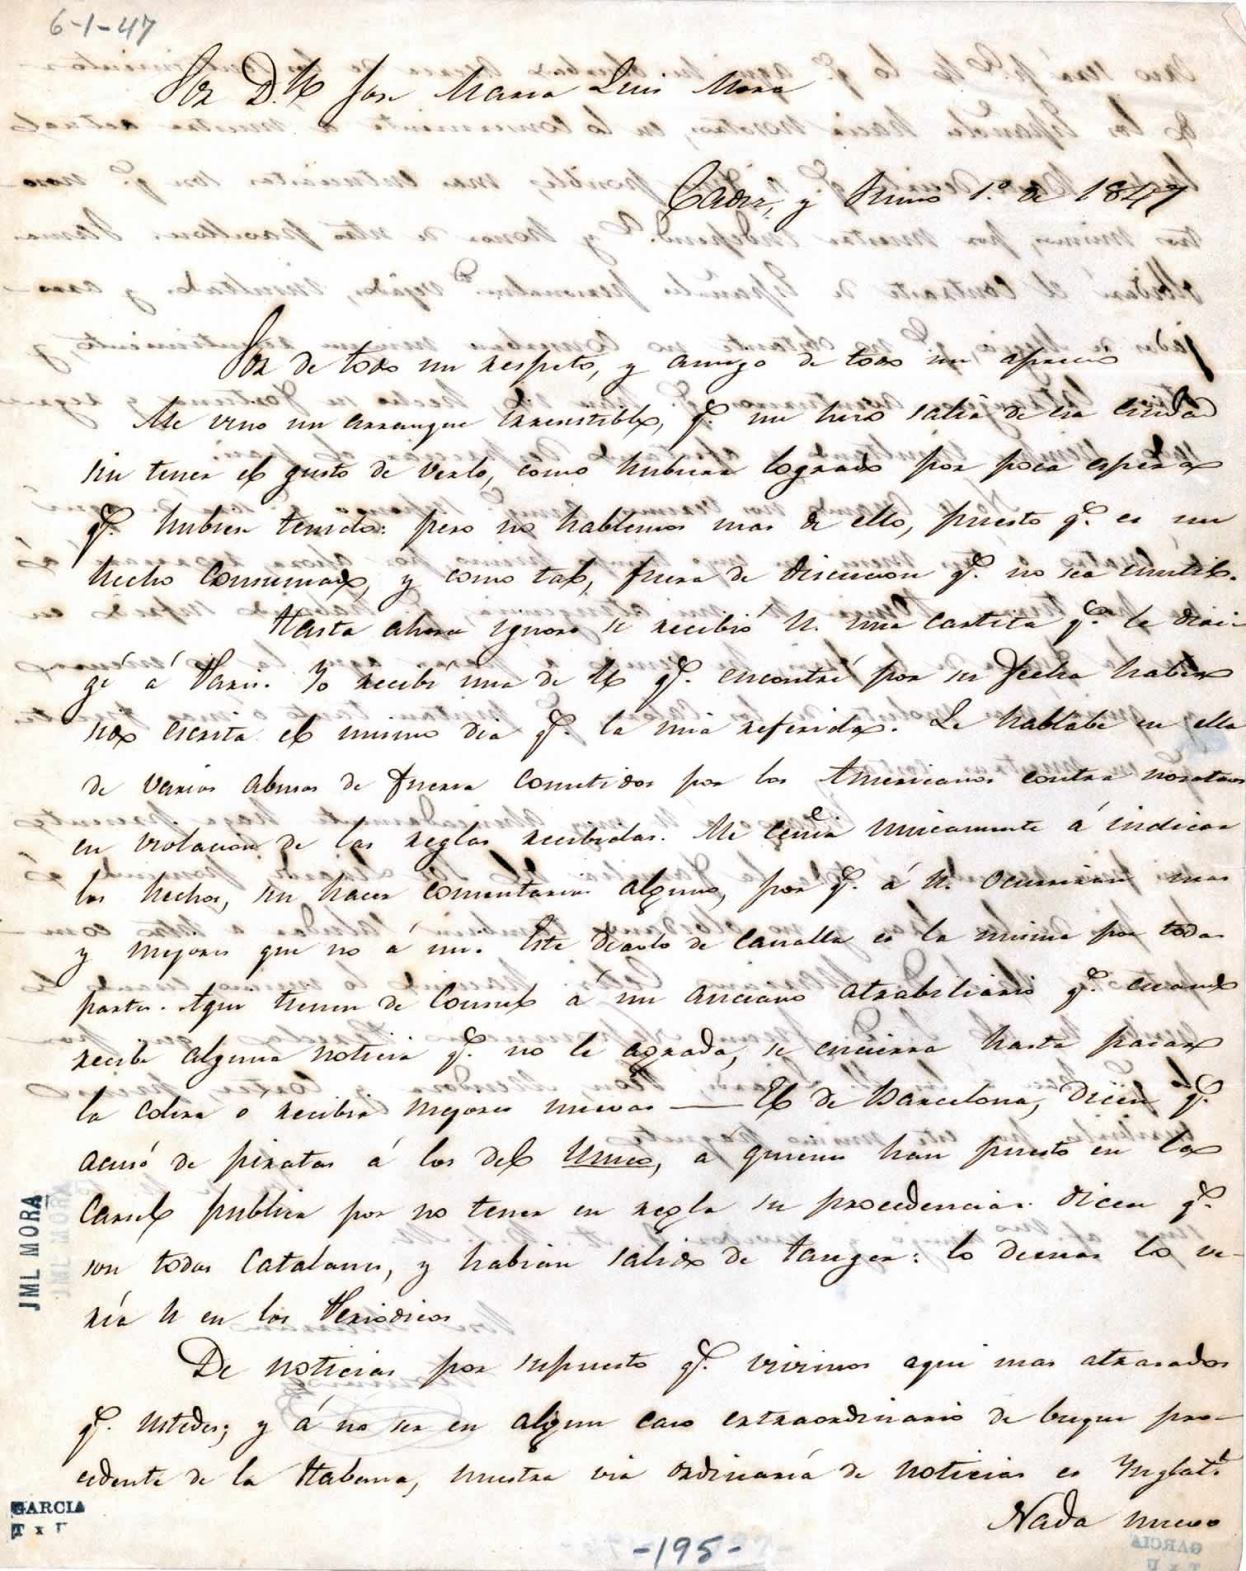 6-1-47
Sor D.n Jose Maria Luis Mora
Cadiz, y Junio 1.º de 1847
Sor de todo mi respeto, y amigo de todo mi aprecio
Me vino un arranque irresistible, q.e me hizo salir de esa ciudad
sin tener el gusto de verlo, como hubiera logrado por poca espera
q.e hubiera tenido: pero no hablemos mas de ello, puesto q.e es un
hecho consumado, y como tal, fuera de discusion q.e no sea inutil.
Hasta ahora ignoro si recibió U. una cartita q.e le diri-
gí á Paris. Yo recibí una de U q.e encontré por su fecha haber
sido escrita el mismo dia q.e la mia referida. Le hablaba en ella
de varios abusos de fuerza cometidos por los Americanos contra nosotros
en violacion de las reglas recibidas. Me ceñia unicamente á indicar
los hechos, sin hacer comentarios algunos, por q.e á U. ocurriran mas
y mejores que no á mi. Este diablo de canalla es la misma por todas
partes. Aqui tienen de Consul á un anciano atrabiliario q.e cuando
recibe alguna noticia q.e no le agrada, se encierra hasta pasar
la colera o recibir mejores nuevas — El de Barcelona, dicen q.e
acusó de piratas á los del Unico, á quienes han puesto en la
carcel publica por no tener en regla su procedencia. Dicen q.e
son todos Catalanes, y habian salido de Tanger: lo demas lo ve-
ría U en los Periodicos
De noticias por supuesto q.e vivimos aqui mas atrasados
q.e ustedes; y á no ser en algun caso extraordinario de buque pro-
cedente de la Habana, nuestra via ordinaria de noticias es Inglat.a
Nada nuevo
JML MORA
GARCIA
-195-